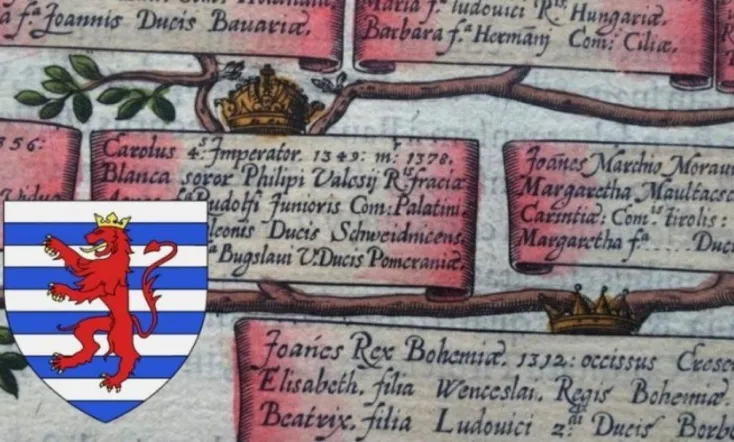 f.ª Joannis Ducis Bavariæ.
Maria f.ª ludovici R.is Hungariæ.
Barbara f.ª Hermanj Com: Ciliæ.
356:
Carolus 4.s Imperator. 1349: m.r 1378.
Blanca soror Philipi Valesij R.is fraciæ
Rudolfi Junioris Com: Palatini
Ducis Schweidnicens,
ª Bugslaui V. Ducis Pomeraniæ.
Joañes Marchio Morau
Margaretha Maultasc
Carintiæ: Com.is tirolis:
Margaretha f.ª ..... Duc
Joañes Rex Bohemiæ. 1312: occissus Cresc
Elisabeth, filia Wenceslai, Regis Bohemiæ.
Beatrix, filia Ludouici 2.di Ducis Borb